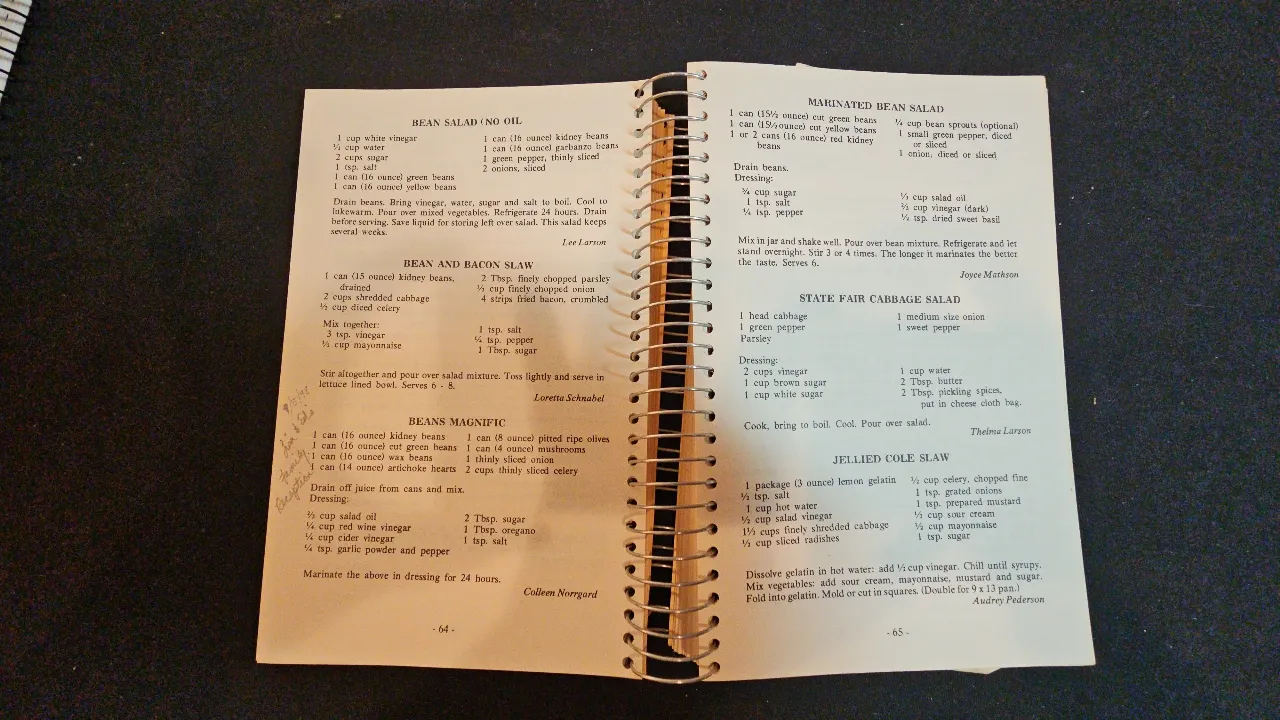 BEAN SALAD (NO OIL
1 cup white vinegar
½ cup water
2 cups sugar
1 tsp. salt
1 can (16 ounce) green beans
1 can (16 ounce) yellow beans
1 can (16 ounce) kidney beans
1 can (16 ounce) garbanzo beans
1 green pepper, thinly sliced
2 onions, sliced
Drain beans. Bring vinegar, water, sugar and salt to boil. Cool to
lukewarm. Pour over mixed vegetables. Refrigerate 24 hours. Drain
before serving. Save liquid for storing left over salad. This salad keeps
several weeks.
Lee Larson
BEAN AND BACON SLAW
1 can (15 ounce) kidney beans,
drained
2 cups shredded cabbage
½ cup diced celery
2 Tbsp. finely chopped parsley
½ cup finely chopped onion
4 strips fried bacon, crumbled
Mix together:
3 tsp. vinegar
½ cup mayonnaise
1 tsp. salt
¼ tsp. pepper
1 Tbsp. sugar
Stir altogether and pour over salad mixture. Toss lightly and serve in
lettuce lined bowl. Serves 6 - 8.
Loretta Schnabel
BEANS MAGNIFIC
1 can (16 ounce) kidney beans
1 can (16 ounce) cut green beans
1 can (16 ounce) wax beans
1 can (14 ounce) artichoke hearts
1 can (8 ounce) pitted ripe olives
1 can (4 ounce) mushrooms
1 thinly sliced onion
2 cups thinly sliced celery
Drain off juice from cans and mix.
Dressing:
cup salad oil
¼ cup red wine vinegar
¼ cup cider vinegar
¼ tsp. garlic powder and pepper
2 Tbsp. sugar
1 Tbsp. oregano
1 tsp. salt
Marinate the above in dressing for 24 hours.
Colleen Norrgard
- 64 -
Family
MARINATED BEAN SALAD
1 can (15½ ounce) cut green beans
1 can (15½ ounce) cut yellow beans
1 or 2 cans (16 ounce) red kidney
beans
¼ cup bean sprouts (optional)
1 small green pepper, diced
or sliced
1 onion, diced or sliced
Drain beans.
Dressing:
¾ cup sugar
1 tsp. salt
¼ tsp. pepper
cup salad oil
cup vinegar (dark)
½ tsp. dried sweet basil
Mix in jar and shake well. Pour over bean mixture. Refrigerate and let
stand overnight. Stir 3 or 4 times. The longer it marinates the better
the taste. Serves 6.
Joyce Mathson
STATE FAIR CABBAGE SALAD
1 head cabbage
1 green pepper
Parsley
1 medium size onion
1 sweet pepper
Dressing:
2 cups vinegar
1 cup brown sugar
1 cup white sugar
1 cup water
2 Tbsp. butter
2 Tbsp. pickling spices,
put in cheese cloth bag.
Cook, bring to boil. Cool. Pour over salad.
Thelma Larson
JELLIED COLE SLAW
1 package (3 ounce) lemon gelatin
½ tsp. salt
1 cup hot water
½ cup salad vinegar
1½ cups finely shredded cabbage
½ cup sliced radishes
½ cup celery, chopped fine
1 tsp. grated onions
1 tsp. prepared mustard
½ cup sour cream
½ cup mayonnaise
1 tsp. sugar
Dissolve gelatin in hot water: add ½ cup vinegar. Chill until syrupy.
Mix vegetables: add sour cream, mayonnaise, mustard and sugar.
Fold into gelatin. Mold or cut in squares. (Double for 9 x 13 pan.)
Audrey Pederson
- 65 -